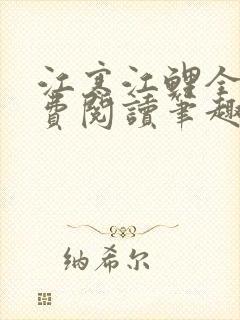 江寒江鲤全
费阅读笔趣
纳希尔